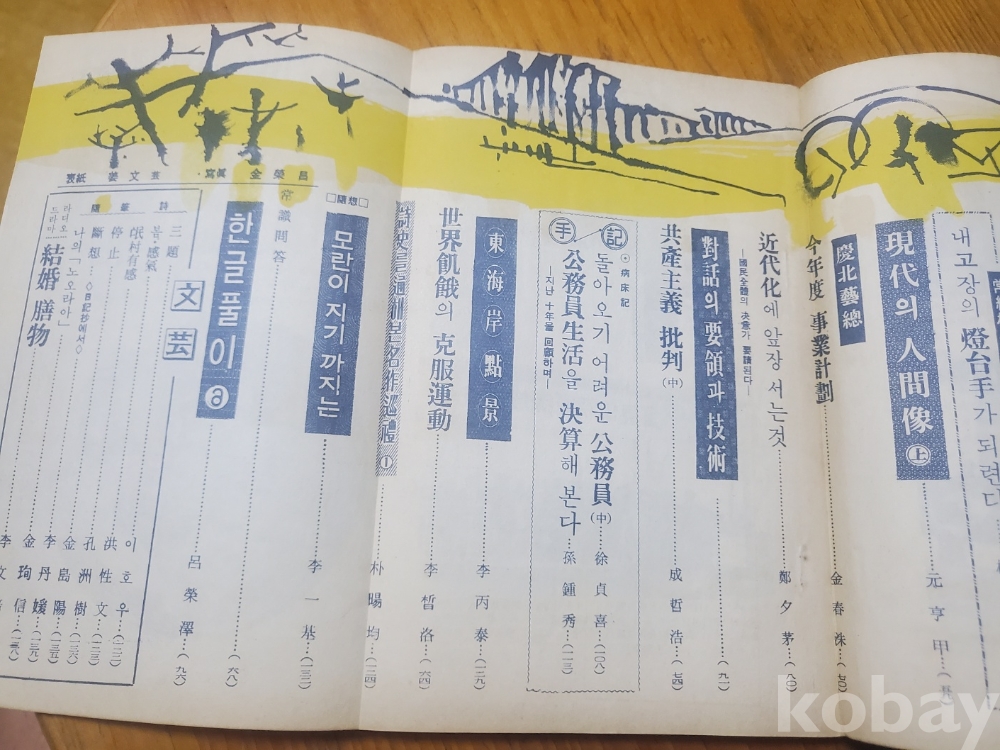 내고장의 燈台手가 되련다
現代의 人間像 (上) 元亨甲
慶北藝總
今年度 事業計劃 金春洙
近代化에 앞장 서는것 鄭夕茅 (八〇)
—國民全體의 決意가 要請된다—
對話의 要領과 技術 (九一)
共産主義 批判 (中) 成哲浩 (七四)
手記
⊙病床記
돌아오기 어려운 公務員 (中) 徐貞喜 (一〇八)
公務員生活을 決算해 본다 孫鍾秀 (一一三)
—지난 十年을 回顧하며—
東海岸點景 李丙泰 (一二九)
世界飢餓의 克服運動 李晳洛 (六四)
詩史를通해본名作巡禮 ① 朴暘均 (一二四)
□隨想□
모란이 지기 까지는 李一基 (一三二)
常識問答
한글풀이 ⓐ (六八)
文芸 呂榮澤 (九六)
詩 三題 이호우 (一二二)
봄·感氣 洪性文 (一二三)
氓村有感 孔洲樹 (一三六)
隨筆 停止 金島陽
斷想 李丹媛 (一三五)
나의 「노오라아」 金珣信 (一三九)
◇日記抄에서◇
라디오드라마 結婚膳物 李文 (一三八)
表紙 姜文 寫眞 金榮昌
kobay